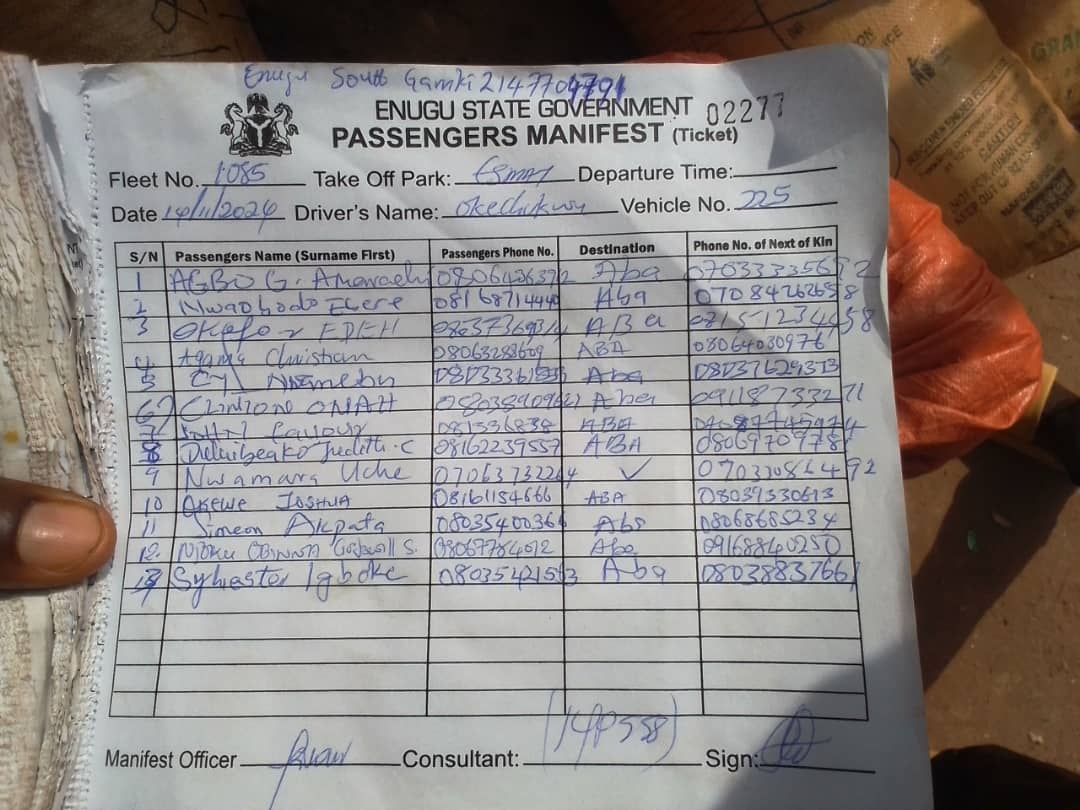 Enugu South Gamki 2147704791
ENUGU STATE GOVERNMENT 02277
PASSENGERS MANIFEST (Ticket)
Fleet No. 1085 Take Off Park: ESMAT Departure Time:
Date 14/11/2024 Driver's Name: Okechukwu Vehicle No. 225
S/N Passengers Name (Surname First) Passengers Phone No. Destination Phone No. of Next of Kin
1 AGBO G. Amaraechi 0806426372 Aba 07033335692
2 Nwaobodo Ebere 08168714440 Aba 07084262658
3 Okafor EDEH ABa
4 Agama Christian 08063288609 ABA 08064030976
5 Aba
6 ONAH Aba 09118733271
7 Favour 081536838 ABA
8 Judith . C 08162239557 ABA 0806970978
9 Nwamara Uche 07063732264 ✓
10 OKEWE JOSHUA 08161154666 ABA 08039330613
11 Simeon Akpata 08035400366 Aba 08068685234
12. NJOKU OBINNA Godswill S. 08067764612 Aba 09168840250
13 Sylvaster Igboke 08035421563 Aba 08038837661
Manifest Officer Consultant: Sign: